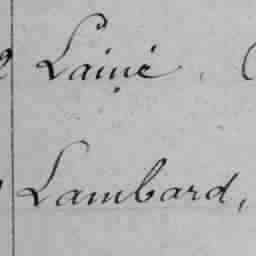 Lainé. (
Lambard,